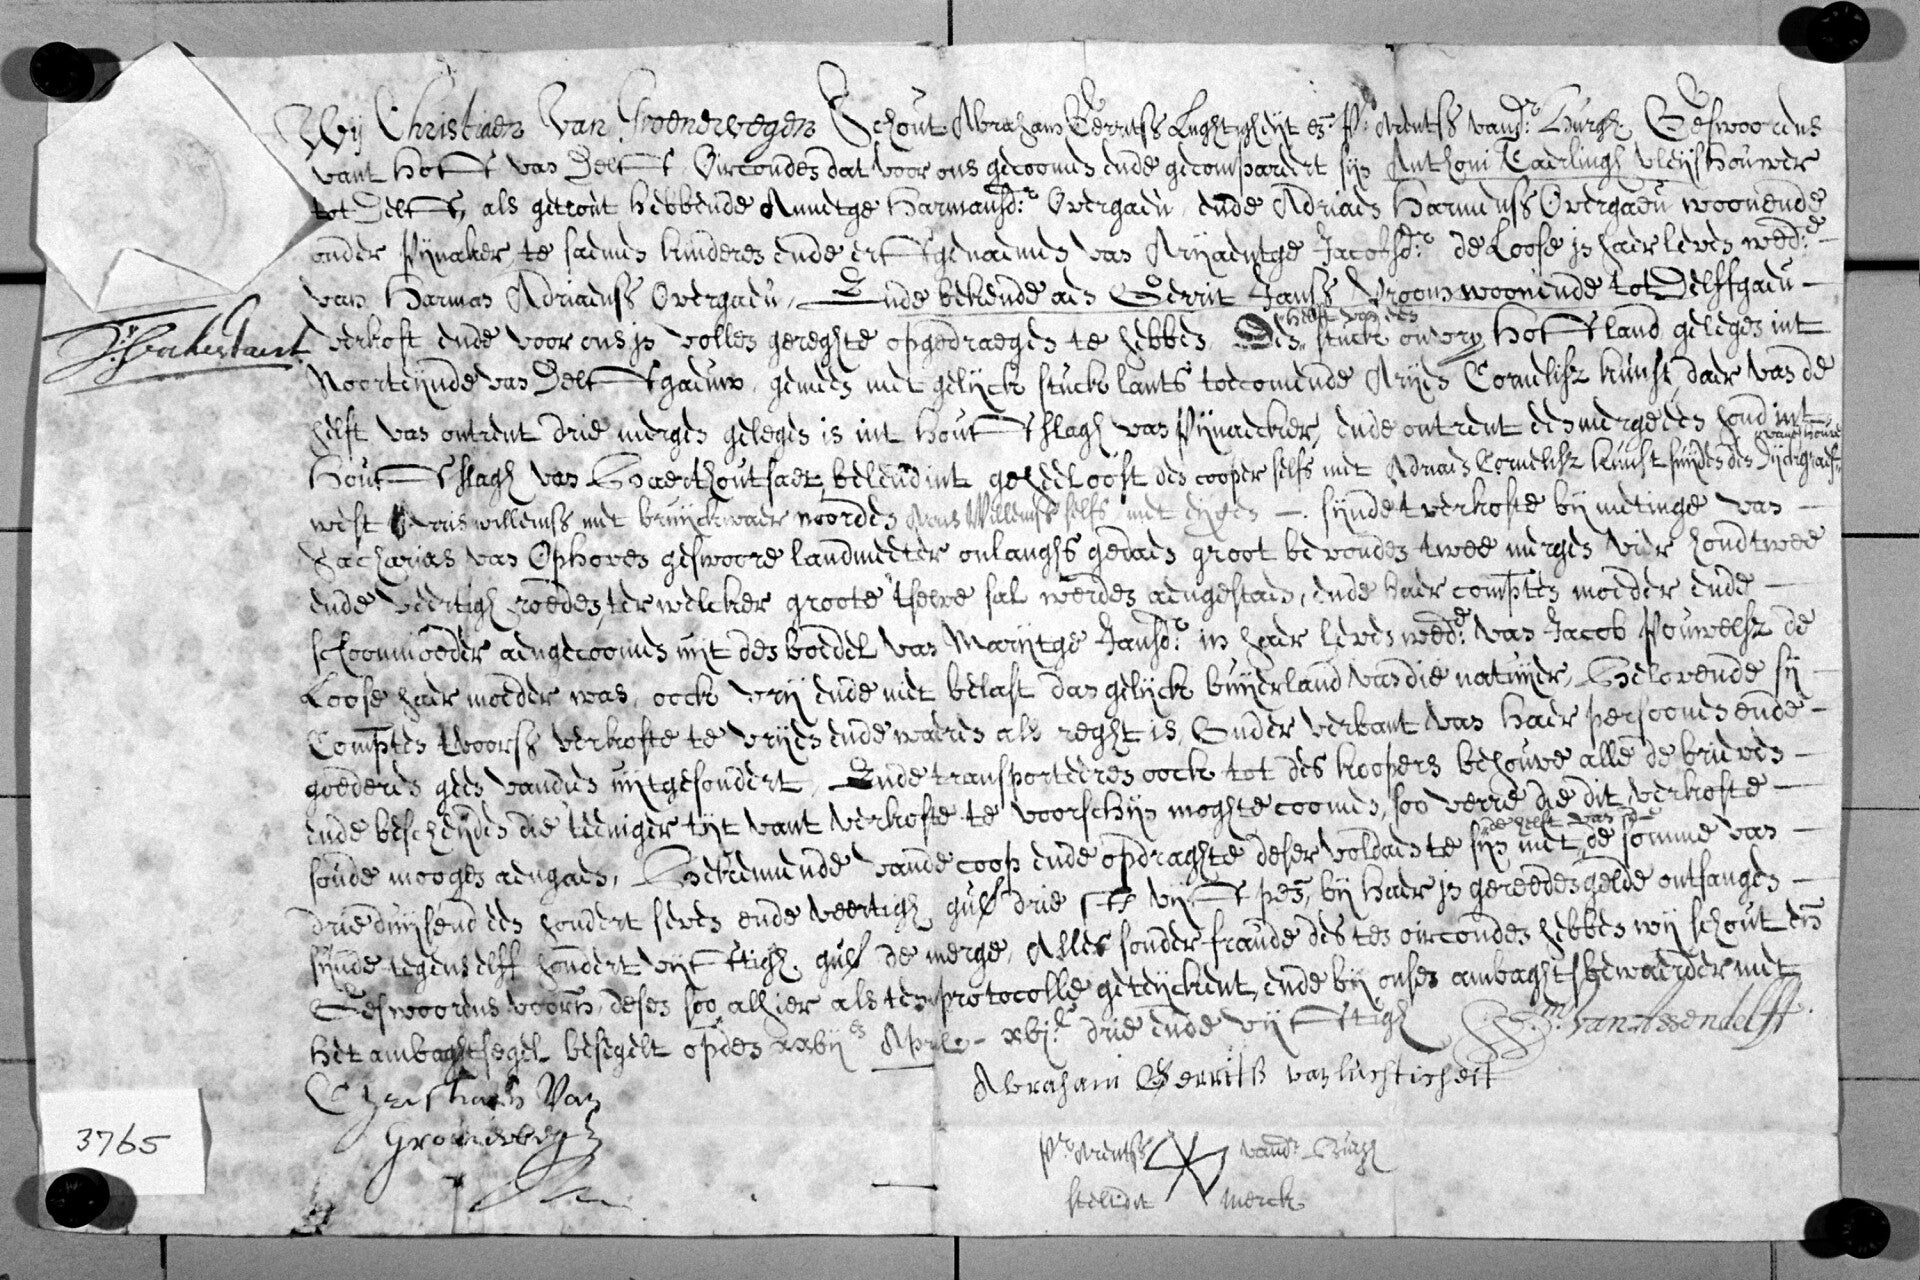 Wij Christiaen Van Groenewegen Schout Abraham Gerritss Lughtigheijt en P. Arentss vand.r Burgh Geswoorens
vant Hoff van Delff Oirconden dat voor ons gecoomen ende gecompareert sijn Anthoni Caerlingh vleijshouwer
tot Delff, als getrout hebbende Annetge Harmansd.r Overgaeu, ende Adriaen Harmenss Overgaeu woonende
onder Pijnaker, te saemen kinderen ende erffgenaemen van Arijaentge Jacobsd.r de Loose in haer leven wed.e
van Harman Adriaenss Overgaeu, Ende bekende aen Gerrit Janss Vroom woonende tot Delffgaeu
verkoft ende voor ons in vollen gereghte opgedraegen te hebben, De helft van een stuck onvry Hoffland gelegen int
Noorteijnde van Delffgaeuw, gemeen met gelijck stuck lants toecomende Arijen Cornelisz kunst, daer van de
helft van ontrent drie mergen gelegen is int Houffslagh van Pijnacker, ende ontrent een merge een hond int
Houffslagh van Biesthoutsaet, belend int geheel oost den cooper selfs met Adriaen Cornelisz kunst suijden den Dijckgraeff
west Joris willemss met bruijckwaer noorden Arens Willemss selfs met eijgen sijnde t verkofte bij metinge van
Zacharias van Ophoven geswoore landmeeter onlanghs gedaen groot bevonden twee mergen vier hond twee
ende veertigh roeden, ter welcker groote tselve sal werden aengestaen, ende haer comp.ten moeder ende
schoonmoeder aengecoomen uijt den boedel van Marijtge Jansd.r in haer leven wed.e van Jacob Pouwelsz de
Loose haer moeder was, oock vrij ende niet belast dan gelijck buijerland van die natuijer, Belovende sij
Comp.ten tvoorss verkofte te vrijen ende waeren als reght is, Onder verbant van haer persoonen ende
goederen geen vandien uijtgesondert, Ende transporteeren oock tot des koopers behouve alle de brieven
ende bescheijden die teeniger tijt vant verkofte te voorschijn moghte coomen, soo verre die dit verkofte
soude moogen aengaen, Bekennende vande coop ende opdraghte deser voldaen te sijn met de helft van de somme van
drieduijsend een hondert seven ende veertigh gul drie st vijff pen, bij haer in gereeden gelde ontfangen
sijnde tegens elff hondert vijfftigh gul de merge, Alles sonder fraude des ten oirconden hebben wij schout en
Geswoorens voorn, desen soo alhier als ten protocolle geteijckent, ende bij onsen ambaghtsbewaerder met
het ambaghtsegel besegelt op den xxvij.en April xvj.c drie ende vijfftigh
W.m van Assendelff
Abraham Gerritss van luchticheit
Christiaen Van
Groenewegen
P.r Arentss vand.r Burgh
stelt dit merck
3765